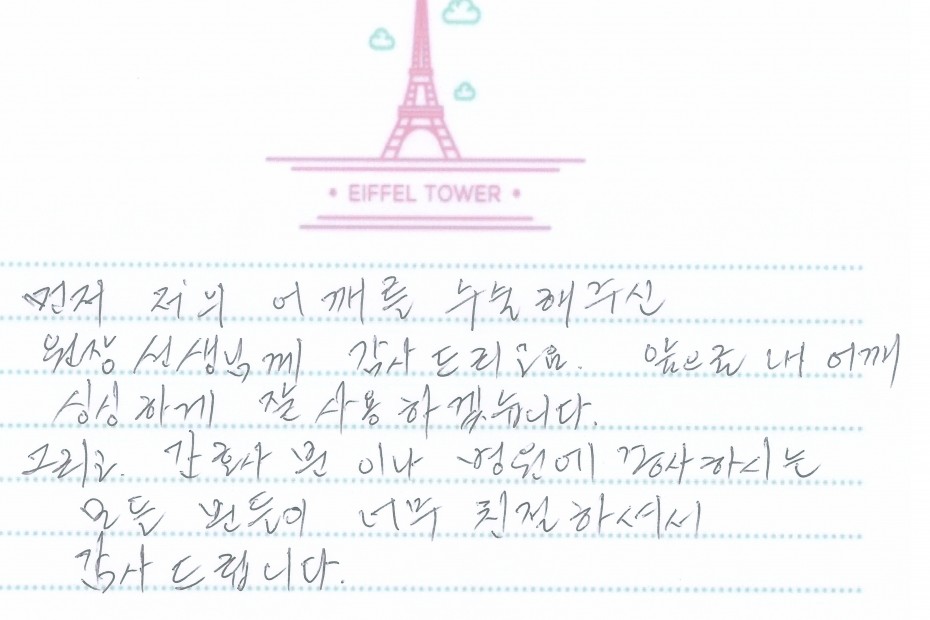 • EIFFEL TOWER •
먼저 저의 어깨를 수술해주신
원장선생님께 감사드리고요. 앞으로 내 어깨
싱싱하게 잘 사용하겠습니다.
그리고. 간호사 분 이나 병원에 종사하시는
모든 분들이 너무 친절하셔서
감사드립니다.